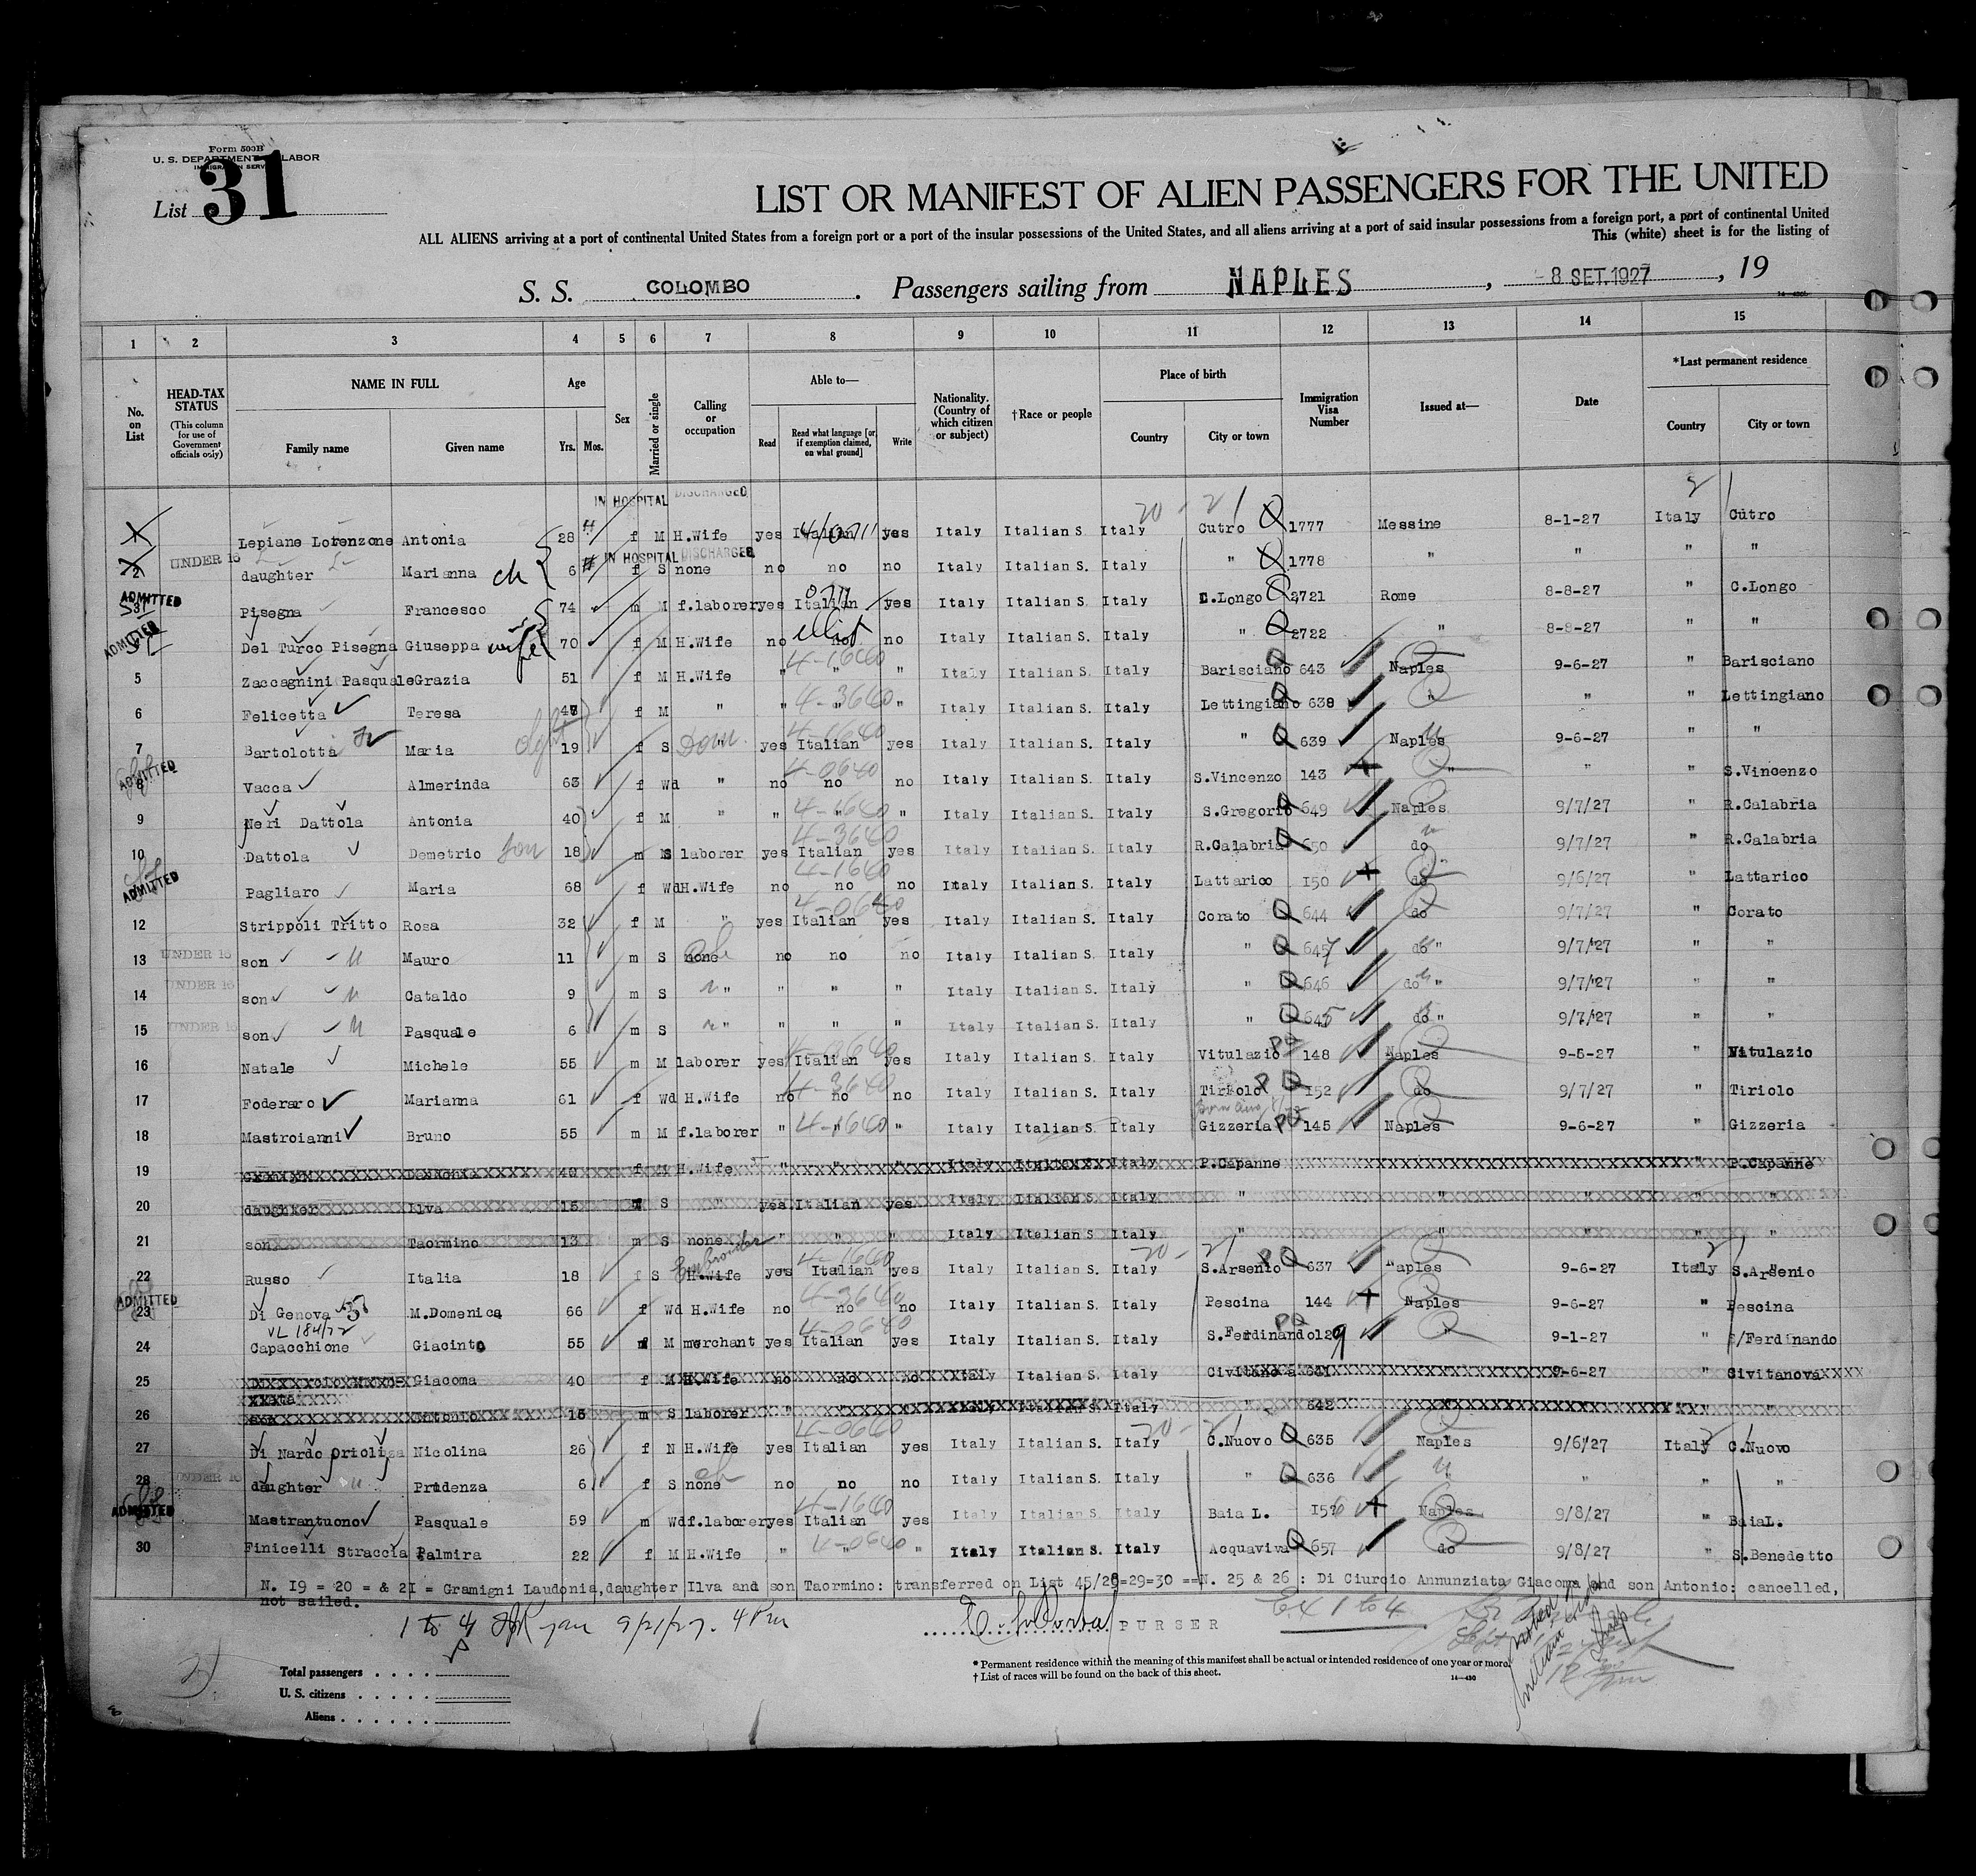 Form 500B
U. S. DEPARTMENT LABOR
List 31
LIST OR MANIFEST OF ALIEN PASSENGERS FOR THE UNITED
ALL ALIENS arriving at a port of continental United States from a foreign port or a port of the insular possessions of the United States, and all aliens arriving at a port of said insular possessions from a foreign port, a port of continental United
This (white) sheet is for the listing of
S. S. COLOMBO . Passengers sailing from NAPLES , 8 SET.1927 , 19
1 2 3 4 5 6 7 8 9 10 11 12 13 14 15
No. on List
HEAD-TAX STATUS (This column for use of Government officials only)
NAME IN FULL Family name Given name
Age Yrs. Mos.
Sex
Married or single
Calling or occupation
Able to— Read Read what language [or, if exemption claimed, on what ground] Write
Nationality. (Country of which citizen or subject)
†Race or people
Place of birth Country City or town
Immigration Visa Number
Issued at—
Date
*Last permanent residence Country City or town
IN HOSPITAL DISCHARGED
Lepiane Lorenzone Antonia 28 f M H.Wife yes Italian yes Italy Italian S. Italy Cutro 1777 Messine 8-1-27 Italy Cutro
IN HOSPITAL DISCHARGED
2 UNDER 16 daughter Marianna ch 6 f S none no no no Italy Italian S. Italy " 1778 " " " "
ADMITTED
3 Pisegna Francesco 74 m M f.laborer yes Italian yes Italy Italian S. Italy C.Longo 2721 Rome 8-8-27 " C.Longo
ADMITTED Del Turco Pisegna Giuseppa wife 70 f M H.Wife no not no Italy Italian S. Italy " 2722 " 8-8-27 " "
5 Zaccagnini Pasquale Grazia 51 f M H.Wife " 4-1640 " " Italy Italian S. Italy Barisciano 643 Naples 9-6-27 " Barisciano
6 Felicetta Teresa 47 f M " " 4-3640 " " Italy Italian S. Italy Lettingiano 638 " " " Lettingiano
7 Bartolotta Maria 19 f S " yes Italian yes Italy Italian S. Italy " 639 Naples 9-6-27 " "
ADMITTED
8 Vacca Almerinda 63 f Wd " no 4-0640 no no Italy Italian S. Italy S.Vincenzo 143 " " " S.Vincenzo
9 Neri Dattola Antonia 40 f M " " 4-1640 " " Italy Italian S. Italy S.Gregorio 649 Naples 9/7/27 " R.Calabria
10 Dattola Demetrio son 18 m S laborer yes 4-3640 Italian yes Italy Italian S. Italy R.Calabria 650 do 9/7/27 " R.Calabria
ADMITTED Pagliaro Maria 68 f Wd H.Wife no 4-1640 no no Italy Italian S. Italy Lattarico 150 do 9/6/27 " Lattarico
12 Strippoli Tritto Rosa 32 f M " yes 4-0640 Italian yes Italy Italian S. Italy Corato 644 do 9/7/27 " Corato
13 UNDER 16 son Mauro 11 m S none no no no Italy Italian S. Italy " 647 do " 9/7/27 " "
14 UNDER 16 son Cataldo 9 m S " " " " Italy Italian S. Italy " 646 do " 9/7/27 " "
15 UNDER 16 son Pasquale 6 m S " " " " Italy Italian S. Italy " 645 do " 9/7/27 " "
16 Natale Michele 55 m M laborer yes Italian yes Italy Italian S. Italy Vitulazio 148 Naples 9-6-27 " Vitulazio
17 Foderaro Marianna 61 f Wd H.Wife no 4-3640 no no Italy Italian S. Italy Tiriolo 152 do 9/7/27 " Tiriolo
18 Mastroianni Bruno 55 m M f.laborer " 4-1640 " " Italy Italian S. Italy Gizzeria 145 Naples 9-6-27 " Gizzeria
19 40 f M H.Wife " " " Italy Italian S. Italy P.Capanne " P.Capanne
20 daughter Ilva 15 S " yes Italian yes Italy Italian S. Italy " " " " "
21 son Taormino 13 m S none " " " Italy Italian S. Italy " " " " "
22 Russo Italia 18 f S H.Wife yes 4-1640 Italian yes Italy Italian S. Italy S.Arsenio 637 Naples 9-6-27 Italy S.Arsenio
ADMITTED
23 Di Genova M.Domenica 66 f Wd H.Wife no 4-3640 no no Italy Italian S. Italy Pescina 144 Naples 9-6-27 " Pescina
24 Capacchione Giacinto 55 m M merchant yes 4-0640 Italian yes Italy Italian S. Italy S.Ferdinando 129 " 9-1-27 " S/Ferdinando
25 Giacoma 40 f M H.Wife no no no Italy Italian S. Italy Civitanova 641 9-6-27 " Civitanova
26 Antonio 15 m S laborer " " " Italy Italian S. Italy " 642 " " "
27 Di Nardo Nicolina 26 f N H.Wife yes 4-0640 Italian yes Italy Italian S. Italy C.Nuovo 635 Naples 9/6/27 Italy C.Nuovo
28 UNDER 16 daughter Prudenza 6 f S none no no no Italy Italian S. Italy " 636 " " " "
ADMITTED Mastrantuono Pasquale 59 m Wd f.laborer yes 4-1640 Italian yes Italy Italian S. Italy Baia L. 156 Naples 9/8/27 " Baia L.
30 Finicelli Straccia Palmira 22 f M H.Wife " 4-0640 " " Italy Italian S. Italy Acquaviva 657 do 9/8/27 " S.Benedetto
N. 19 = 20 = & 21 = Gramigni Laudonia,daughter Ilva and son Taormino: transferred on List 45/28=29=30 ==N. 25 & 26 : Di Ciurcio Annunziata Giacoma and son Antonio: cancelled,
not sailed.
1 to 4 9/21/27. 4 Pm
PURSER
Ex 1 to 4
* Permanent residence within the meaning of this manifest shall be actual or intended residence of one year or more.
† List of races will be found on the back of this sheet.
Total passengers . . . .
U. S. citizens . . . . .
Aliens . . . . . .